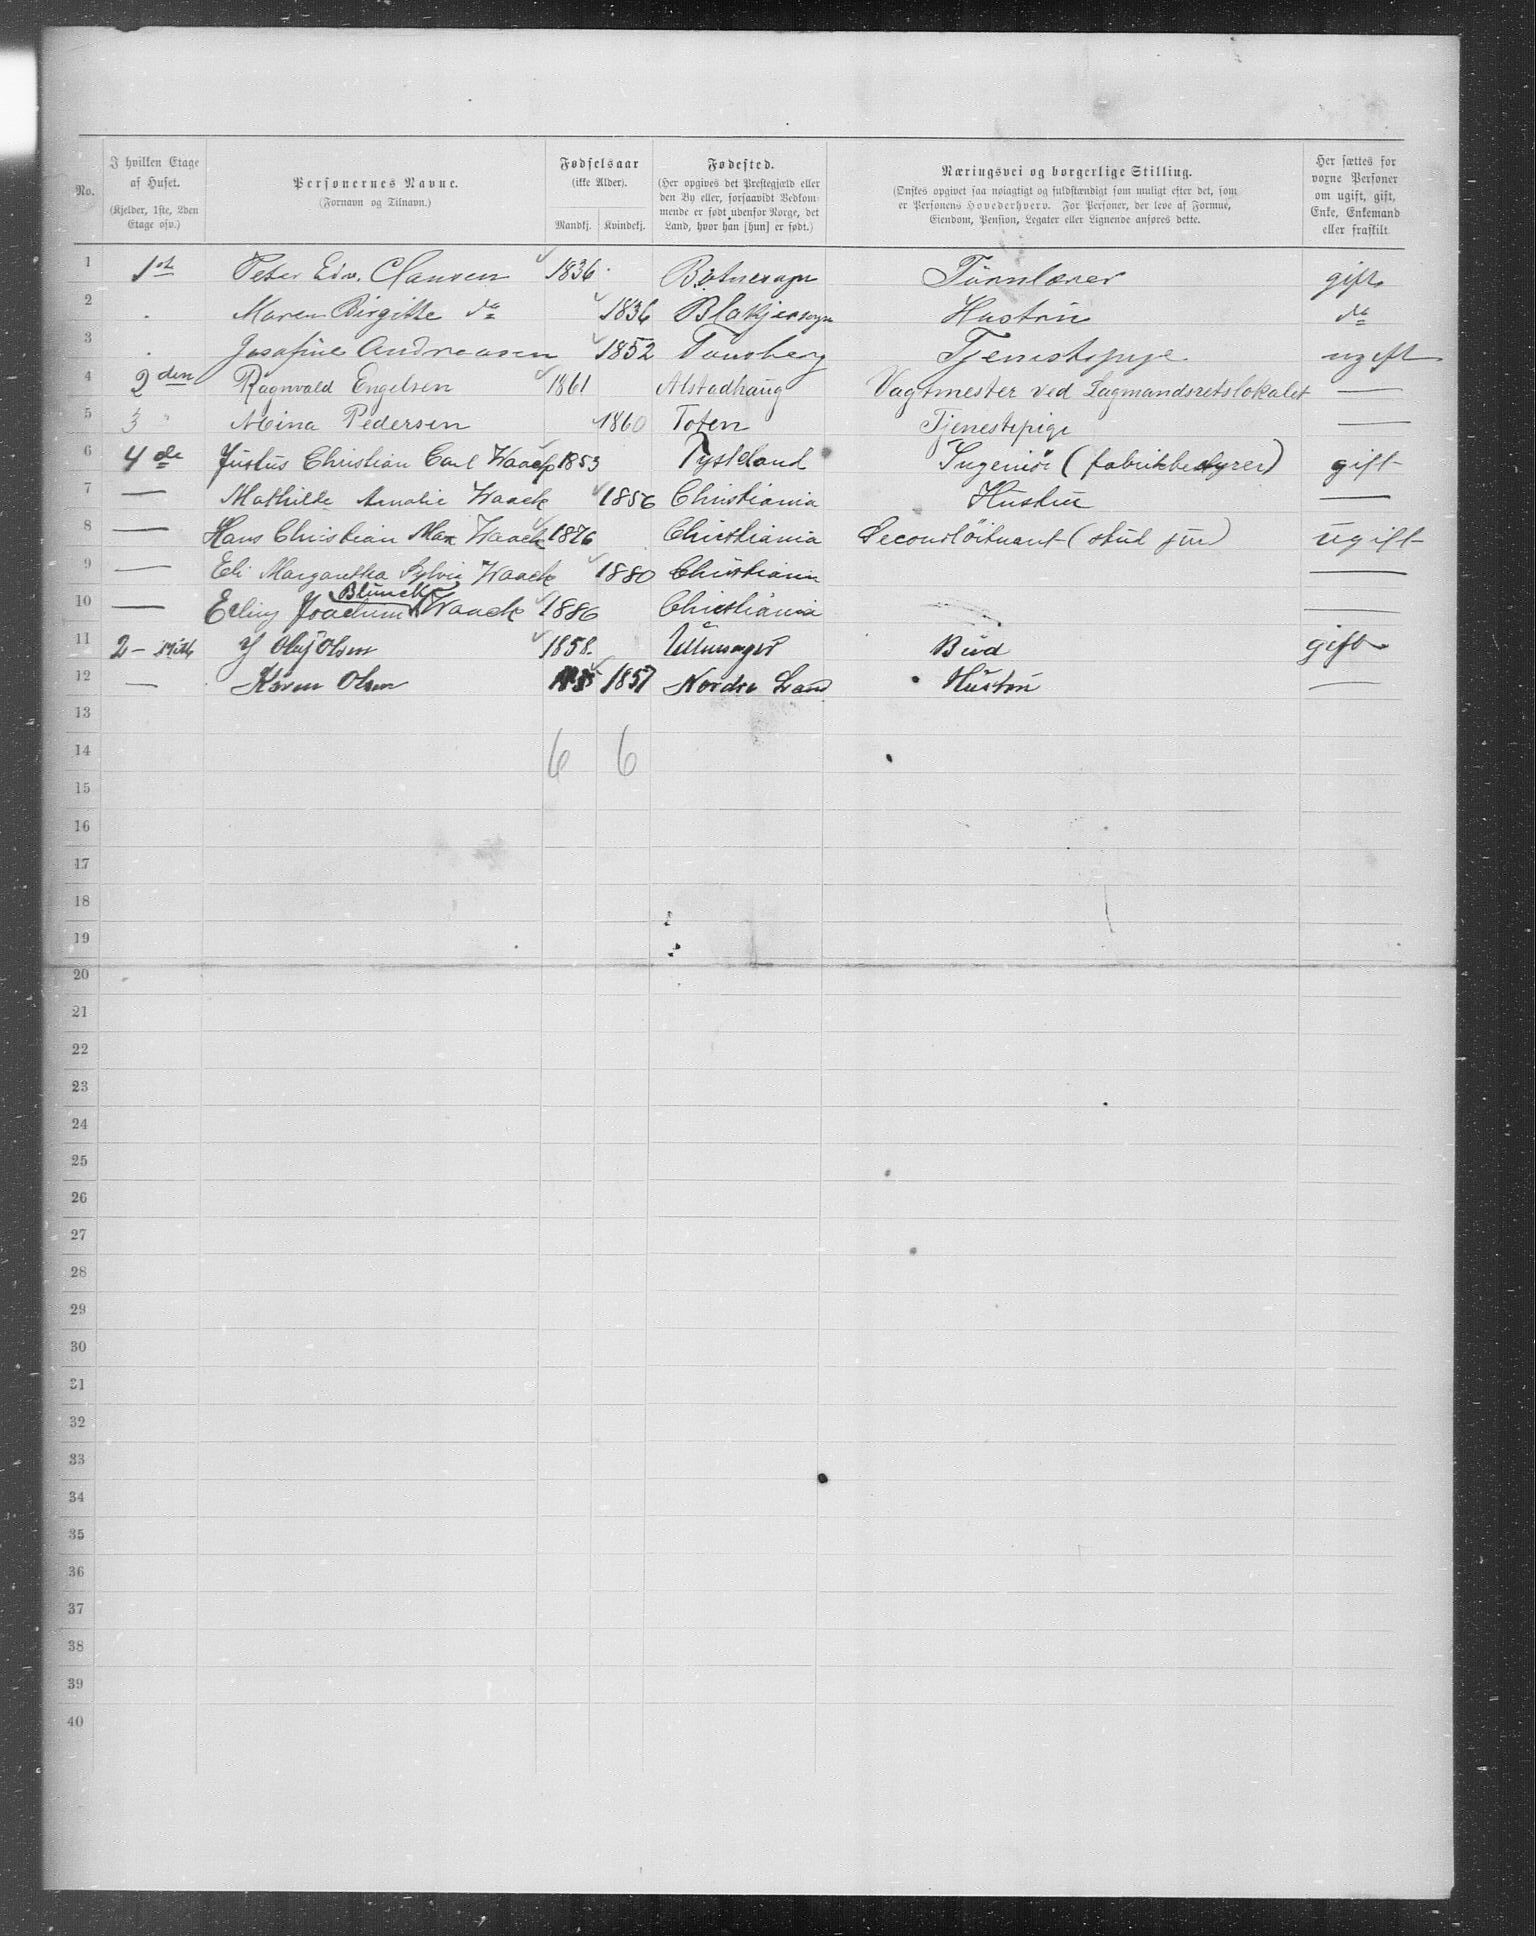 No.
I hvilken Etage af Huset.
(Kjelder, 1ste, 2den Etage osv.)
Personernes Navne.
(Fornavn og Tilnavn.)
Fødselsaar
(ikke Alder).
Mandkj. Kvindekj.
Fødested.
(Her opgives det Prestegjæld eller den By eller, forsaavidt Vedkommende er født udenfor Norge, det Land, hvor han [hun] er født.)
Næringsvei og borgerlige Stilling.
(Ønskes opgivet saa nøiagtigt og fuldstændigt som muligt efter det, som er Personens Hovederhverv. For Personer, der leve af Formue, Eiendom, Pension, Legater eller Lignende anføres dette.)
Her sættes for voxne Personer om ugift, gift, Enke, Enkemand eller fraskilt.
1 1st Peter Edv. Clausen 1836 Botnesogn gift
2 Maren Birgitte do 1836 Blakjersogn Hustru do
3 Josafine Andreasen 1852 Tønsberg Tjenestepige ugift
4 2den Ragnvald Engelsen 1861 Alstadhaug Vagtmester ved Lagmandsretslokalet —
5 3 " Mina Pedersen 1860 Toten Tjenestepige —
6 4de Justus Christian Carl Waack 1853 Tyskland Ingeniør (fabrikbestyrer) gift
7 — Mathilde Amalie Waack 1856 Christiania Hustru —
8 — Hans Christian Max Waack 1876 Christiania Secondløitnant (stud jur) ugift
9 — Eli Margaretha Sylvia Waack 1880 Christiania —
10 — Erling Joachim Blunck Waack 1886 Christiania —
11 2 - Olaf Olsen 1858. Ullensager Bud gift
12 — Karen Olsen 1857 Nordre Land Hustru —
13
14 6 6
15
16
17
18
19
20
21
22
23
24
25
26
27
28
29
30
31
32
33
34
35
36
37
38
39
40